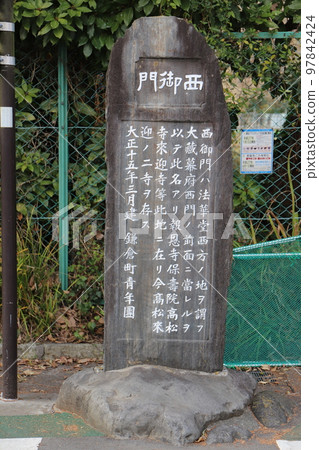 門御西
西御門ハ法華堂西方ノ地ヲ謂フ
大蔵幕府西門ノ前面ニ當レルヲ
以テ此名アリ報恩寺保壽院高松
寺來迎寺等此地ニ在リ今高松來
迎ノ二寺ヲ存ス
大正十五年三月建 鎌倉町青年團
PIXTA
97842424